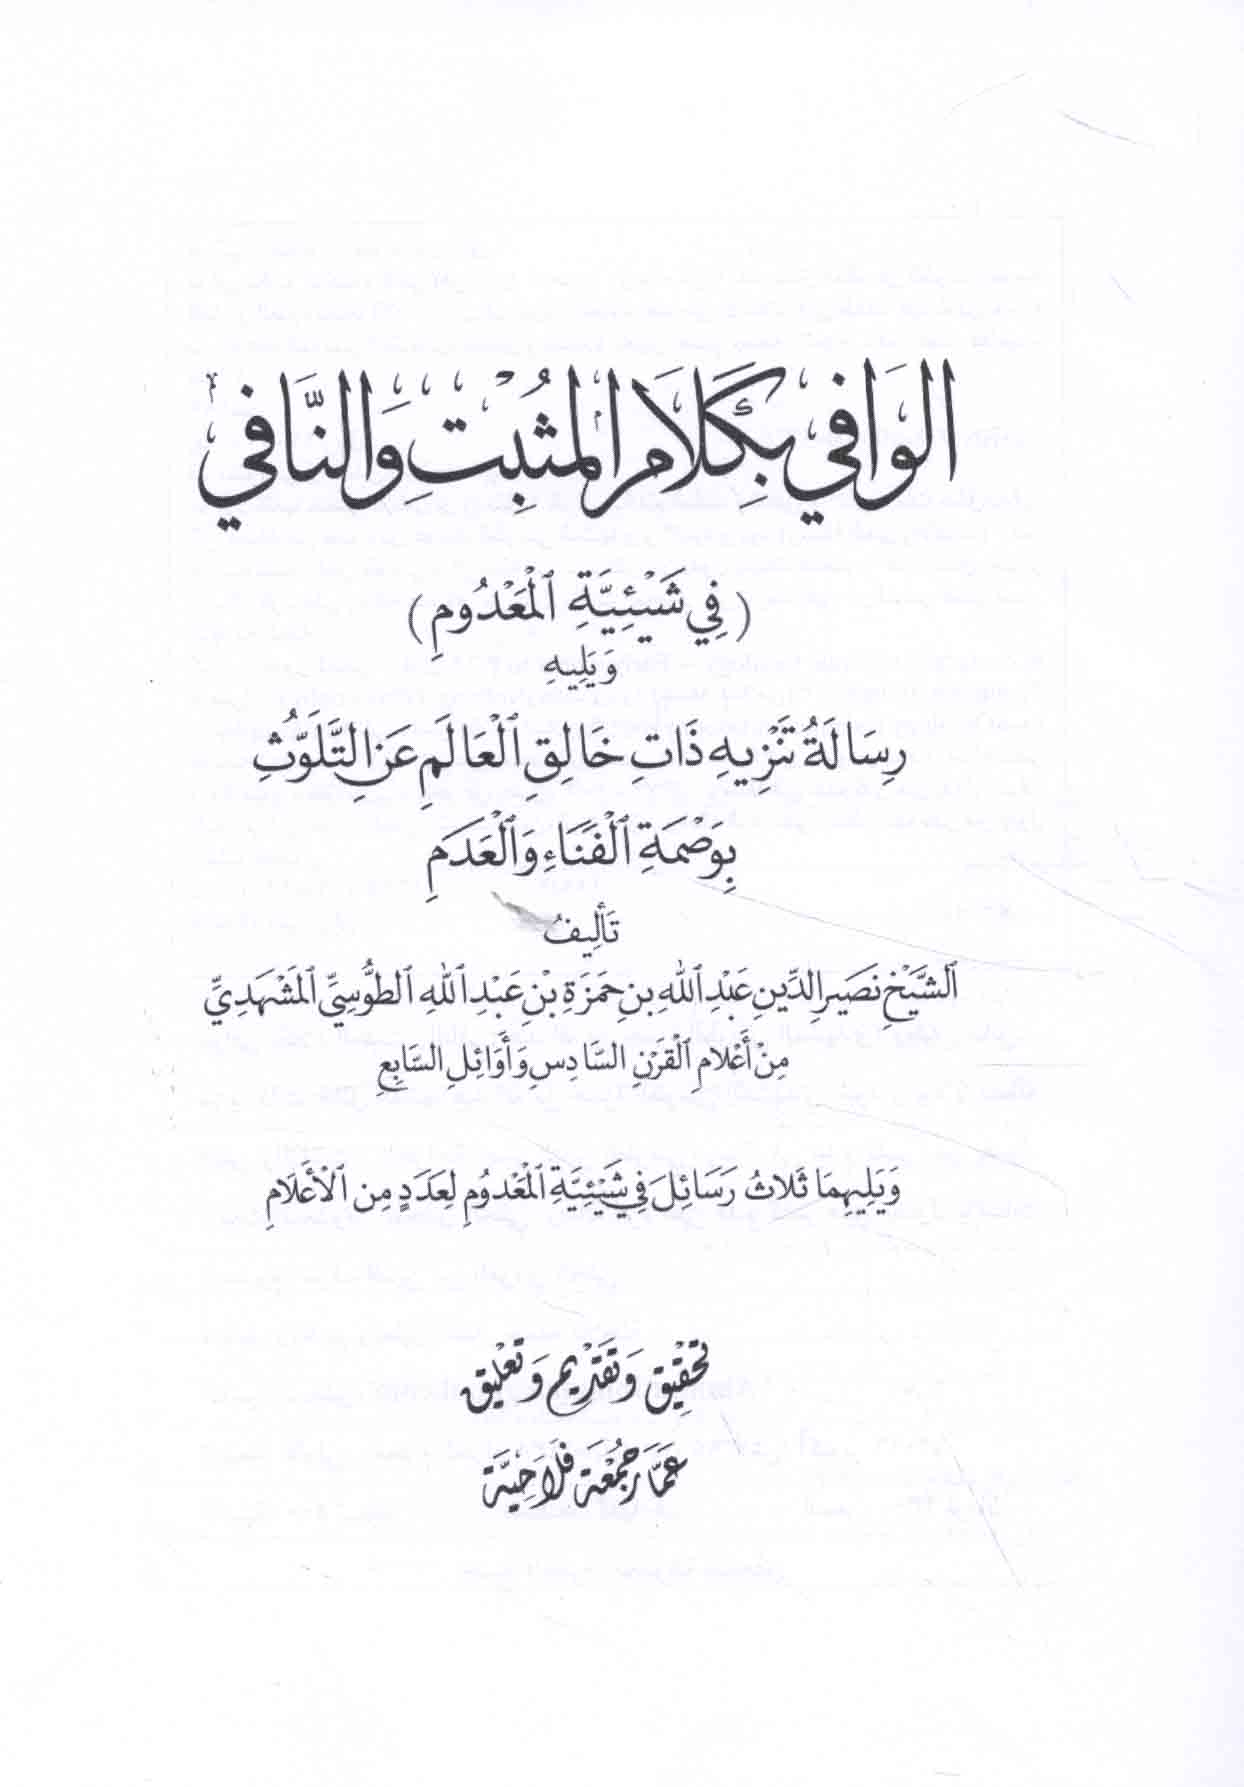 الوَافي بِكَلَامِ المُثبِتِ وَالنَّافي
(فِي شَيْئِيَّةِ الْمَعْدُومِ)
وَيَلِيهِ
رِسَالَةُ تَنْزِيهِ ذَاتِ خَالِقِ الْعَالَمِ عَنِ التَّلَوُّثِ
بِوَصْمَةِ الْفَنَاءِ وَالْعَدَمِ
تَأْلِيفُ
الشَّيْخِ نَصِيرِ الدِّينِ عَبْدِ اللهِ بنِ حَمْزَةِ بْنِ عَبْدِ اللهِ الطُّوسِيِّ الْمَشْهَدِيِّ
مِنْ أَعْلَامِ الْقَرْنِ السَّادِسِ وَأَوَائِلِ السَّابِعِ
وَيَلِيهِمَا ثَلَاثُ رَسَائِلَ فِي شَيْئِيَّةِ الْمَعْدُومِ لِعَدَدٍ مِن الْأَعْلَامِ
تحَقِيق وَتَقدِيم وَتعْليق
عَمَّار جُمْعَة فَلَاحِيَّة